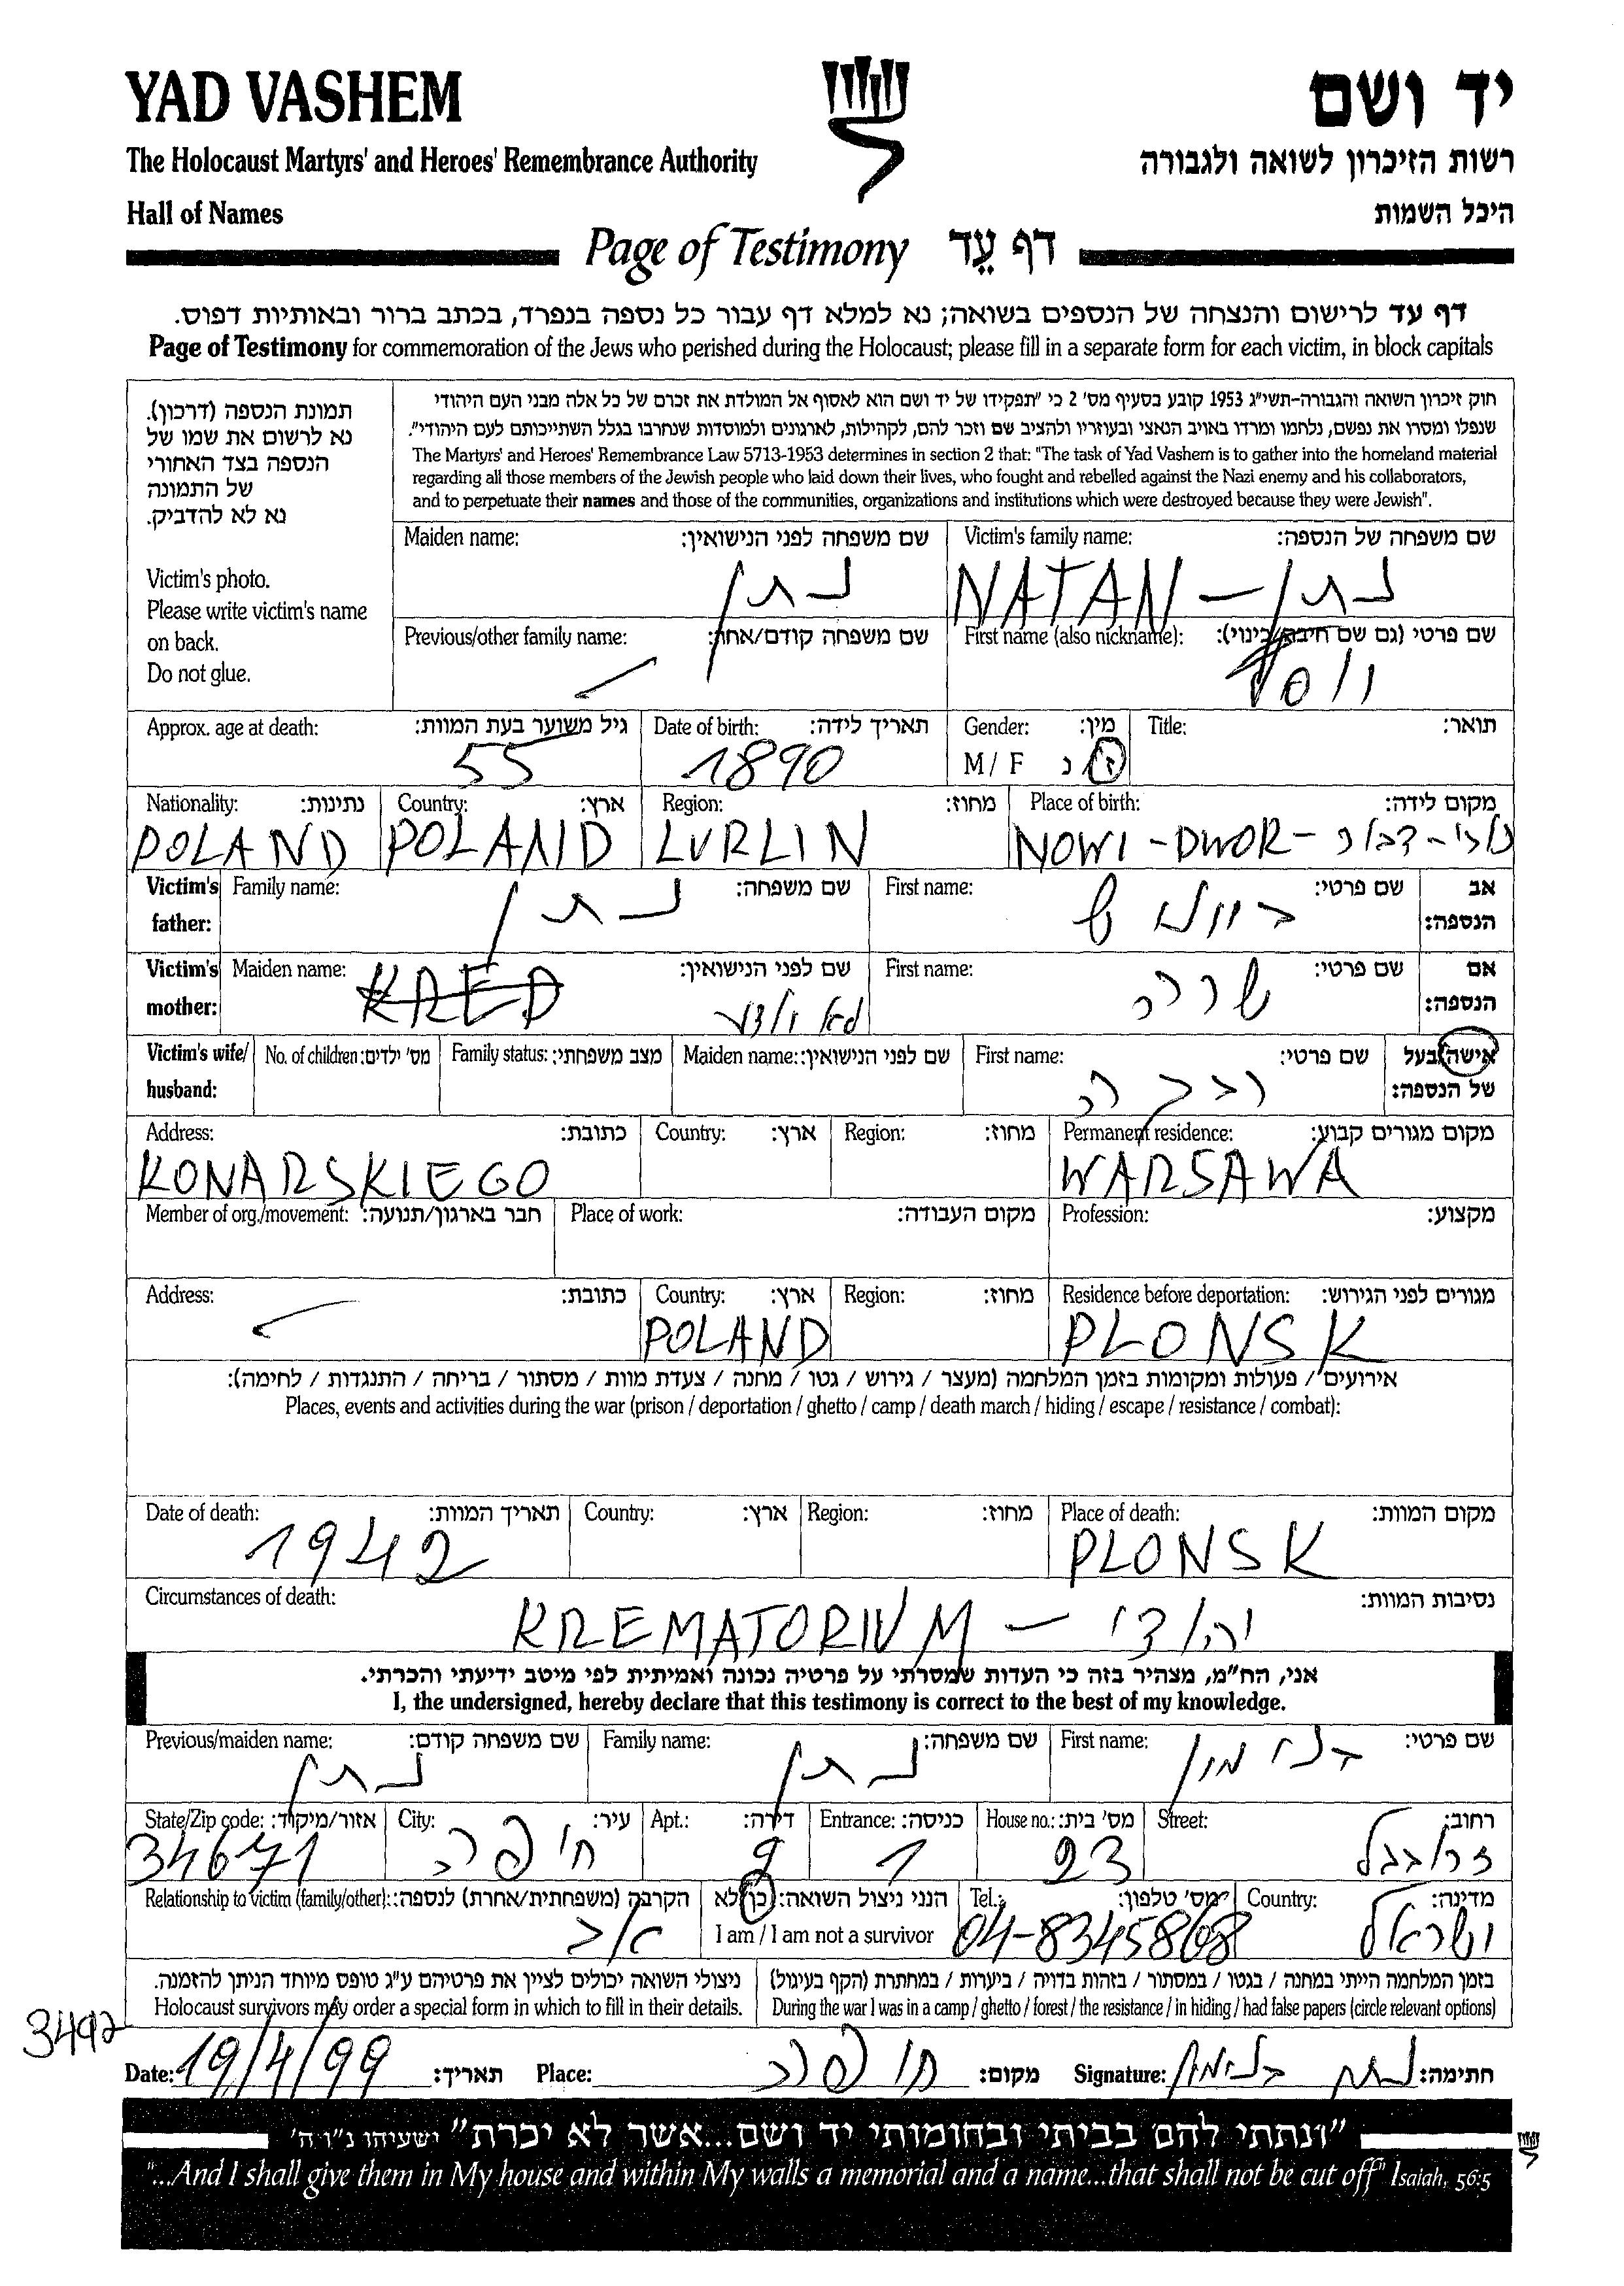 YAD VASHEM
יד ושם
The Holocaust Martyrs' and Heroes' Remembrance Authority
רשות הזיכרון לשואה ולגבורה
Hall of Names
היכל השמות
Page of Testimony דף עֵד
דף עד לרישום והנצחה של הנספים בשואה; נא למלא דף עבור כל נספה בנפרד, בכתב ברור ובאותיות דפוס.
Page of Testimony for commemoration of the Jews who perished during the Holocaust; please fill in a separate form for each victim, in block capitals
תמונת הנספה (דרכון).
נא לרשום את שמו של
הנספה בצד האחורי
של התמונה
נא לא להדביק.
Victim's photo.
Please write victim's name
on back.
Do not glue.
חוק זיכרון השואה והגבורה-תשי"ג 1953 קובע בסעיף מס' 2 כי "תפקידו של יד ושם הוא לאסוף אל המולדת את זכרם של כל אלה מבני העם היהודי
שנפלו ומסרו את נפשם, נלחמו ומרדו באויב הנאצי ובעוזריו ולהציב שם וזכר להם, לקהילות, לארגונים ולמוסדות שנחרבו בגלל השתייכותם לעם היהודי".
The Martyrs' and Heroes' Remembrance Law 5713-1953 determines in section 2 that: "The task of Yad Vashem is to gather into the homeland material
regarding all those members of the Jewish people who laid down their lives, who fought and rebelled against the Nazi enemy and his collaborators,
and to perpetuate their names and those of the communities, organizations and institutions which were destroyed because they were Jewish".
Maiden name: שם משפחה לפני הנישואין:
נתן
Victim's family name: שם משפחה של הנספה:
NATAN – נתן
Previous/other family name: שם משפחה קודם/אחר:
First name (also nickname): שם פרטי (גם שם חיבה/כינוי):
Approx. age at death: גיל משוער בעת המוות:
55
Date of birth: תאריך לידה:
1890
Gender: מין:
M / F ז / נ
Title: תואר:
Nationality: נתינות:
POLAND
Country: ארץ:
POLAND
Region: מחוז:
LURLIN
Place of birth: מקום לידה:
NOWI-DWOR-
Victim's father: Family name: שם משפחה:
נתן
First name: שם פרטי:
אב הנספה:
Victim's mother: Maiden name: שם לפני הנישואין:
KRED
First name: שם פרטי:
שרה
אם הנספה:
Victim's wife/ husband: No. of children: מס' ילדים: Family status: מצב משפחתי: Maiden name: שם לפני הנישואין:
First name: שם פרטי:
רבקה
אישה/בעל של הנספה:
Address: כתובת:
KONARSKIEGO
Country: ארץ: Region: מחוז:
Permanent residence: מקום מגורים קבוע:
WARSAWA
Member of org./movement: חבר בארגון/תנועה: Place of work: מקום העבודה: Profession: מקצוע:
Address: כתובת:
Country: ארץ:
POLAND
Region: מחוז:
Residence before deportation: מגורים לפני הגירוש:
PLONSK
אירועים / פעולות ומקומות בזמן המלחמה (מעצר / גירוש / גטו / מחנה / צעדת מוות / מסתור / בריחה / התנגדות / לחימה):
Places, events and activities during the war (prison / deportation / ghetto / camp / death march / hiding / escape / resistance / combat):
Date of death: תאריך המוות:
1942
Country: ארץ: Region: מחוז:
Place of death: מקום המוות:
PLONSK
Circumstances of death: נסיבות המוות:
KREMATORIUM – יהודי
אני, הח"מ, מצהיר בזה כי העדות שמסרתי על פרטיה נכונה ואמיתית לפי מיטב ידיעתי והכרתי.
I, the undersigned, hereby declare that this testimony is correct to the best of my knowledge.
Previous/maiden name: שם משפחה קודם:
נתן
Family name: שם משפחה:
נתן
First name: שם פרטי:
בנימין
State/Zip code: אזור/מיקוד:
34671
City: עיר:
חיפה
Apt.: דירה:
9
Entrance: כניסה:
1
House no.: מס' בית:
23
Street: רחוב:
Relationship to victim (family/other): הקרבה (משפחתית/אחרת) לנספה:
אב
הנני ניצול השואה: כן/לא
I am / I am not a survivor
Tel.: מס' טלפון:
04-8345868
Country: מדינה:
ישראל
ניצולי השואה יכולים לציין את פרטיהם ע"ג טופס מיוחד הניתן להזמנה.
Holocaust survivors may order a special form in which to fill in their details.
בזמן המלחמה הייתי במחנה / בגטו / במסתור / בזהות בדויה / ביערות / במחתרת (הקף בעיגול)
During the war I was in a camp / ghetto / forest / the resistance / in hiding / had false papers (circle relevant options)
3492
Date: 19/4/99 תאריך: Place: חיפה מקום: Signature: נתן בנימין חתימה:
"ונתתי להם בביתי ובחומותי יד ושם...אשר לא יכרת" ישעיהו נ"ו ה'
"...And I shall give them in My house and within My walls a memorial and a name...that shall not be cut off" Isaiah, 56:5